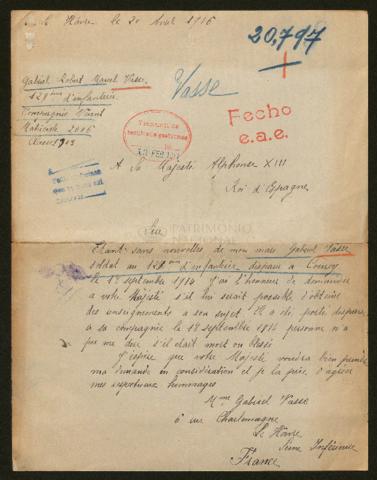 Le Havre le 20 Avril 1916
20.797
Gabriel Robert Marcel Vasse
129ème d'infanterie
Compagnie
Matricule 2006
Classe 1913
Vasse
Fecho
e.a.e.
A Sa Majesté Alphonse XIII
Roi d'Espagne
PATRIMONIO
NACIONAL
Sire
Etant sans nouvelles de mon mari Gabriel Vasse
soldat au 129ème d'infanterie disparu a Courcy
le 18 septembre 1914 j'ai l'honneur de demander
a votre Majesté s'il lui serait possible d'obtenir
des renseignements a son sujet. Il a été porté disparu
a sa compagnie le 18 septembre 1914 personne n'a
pu me dire s'il etait mort ou blessé
J'espère que votre Majesté voudra bien prendre
ma demande en considération et je la prie d'agréer
mes respectueux hommages
Mme Gabriel Vasse
6 rue Charlemagne
Le Havre
Seine Inférieure
France